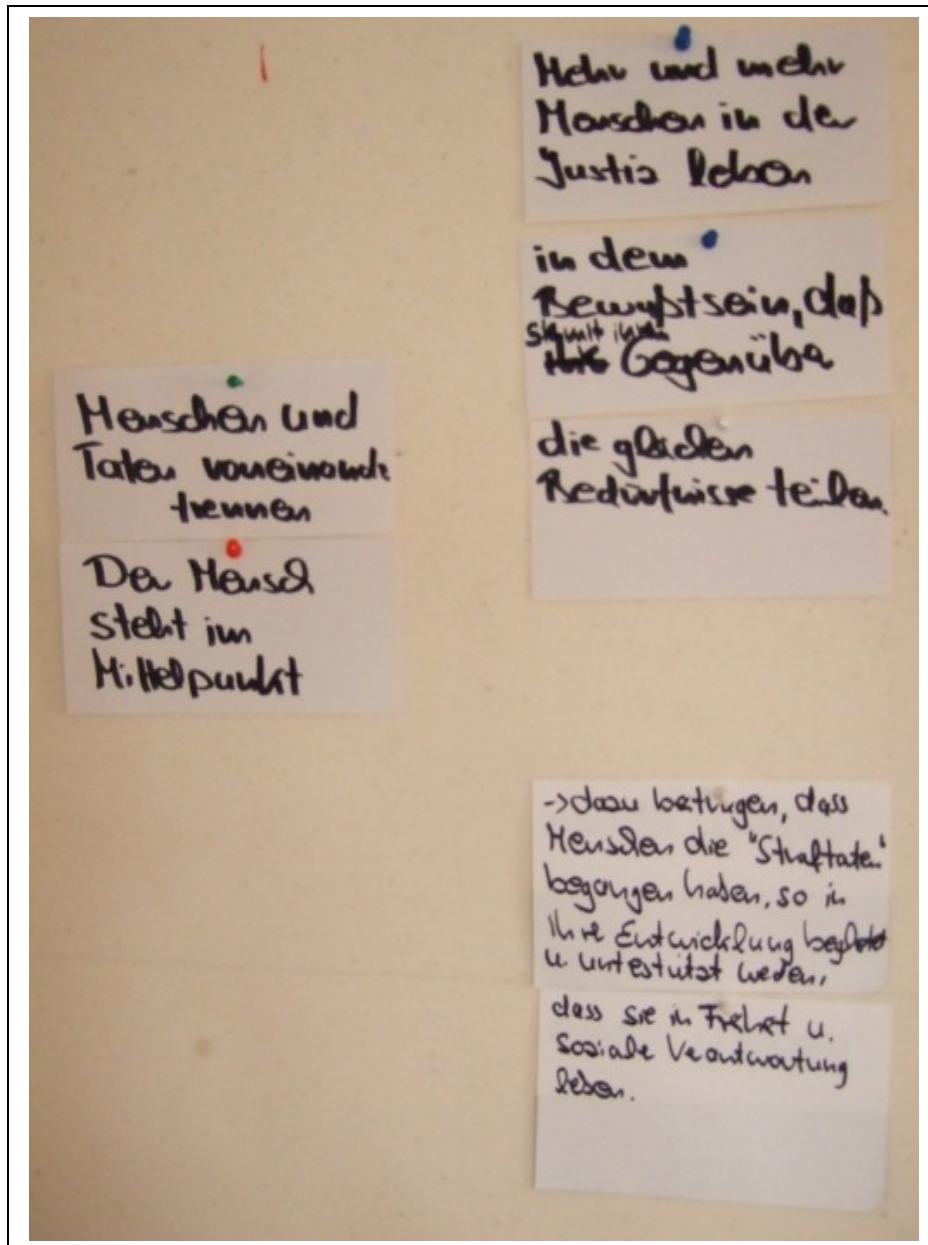 Menschen und
Taten voneinande
trennen
Der Mensch
steht im
Mittelpunkt
Mehr und mehr
Menschen in der
Justiz leben
in dem
Bewußtsein, daß
sie mit ihrem
Gegenüber
die gleichen
Bedürfnisse teilen.
->dazu beitragen, dass
Menschen die "Straftaten"
begangen haben, so in
ihre Entwicklung begleitet
u. unterstützt werden,
dass sie in Freiheit u.
soziale Verantwortung
leben.